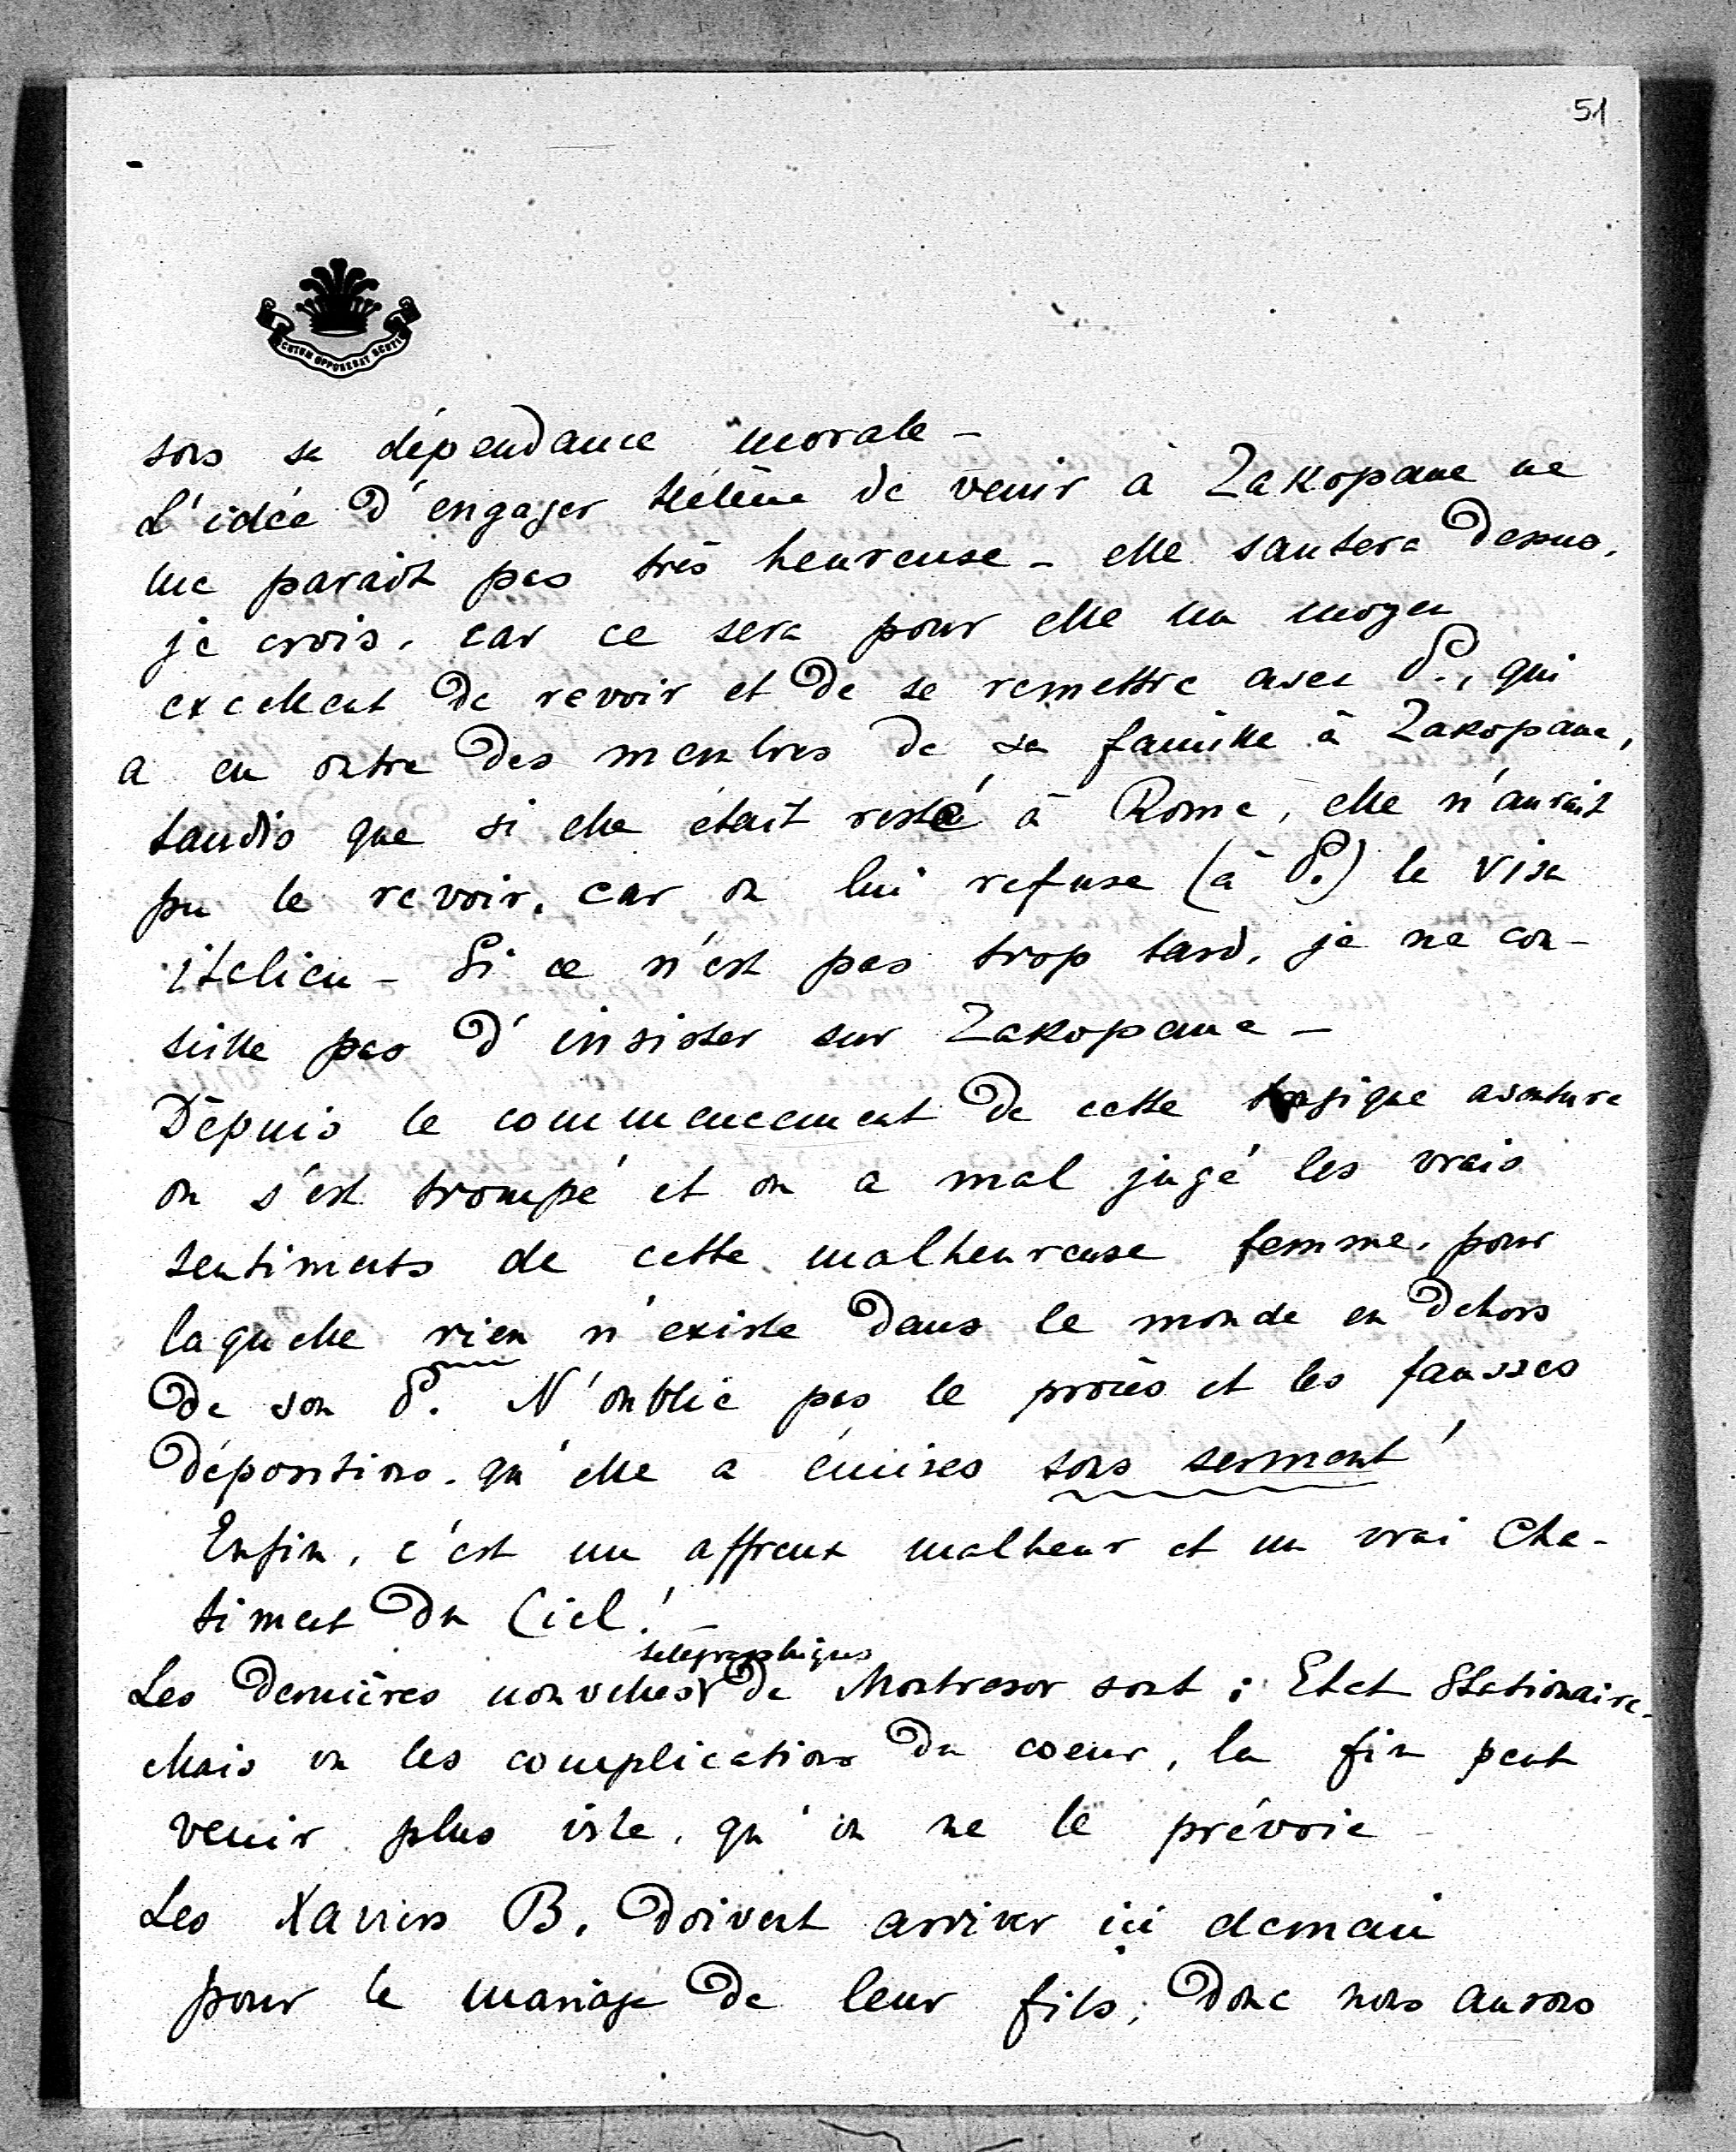 51
SCUTUM OPPONEBAT SCUTIS
sous sa dépendance morale –
L'idée d'engager Hélène de venir à Zakopane ne
me parait pas très heureuse – elle sautera dessus,
je crois, car ce sera pour elle un moyen
excellent de revoir et de se remettre avec S., qui
a en outre des membres de sa famille à Zakopane,
tandis que si elle était resté à Rome, elle n'aurait
pu le revoir, car on lui refuse (à S.) le visa
italien – Si ce n'est pas trop tard, je ne con-
seille pas d'insister sur Zakopane –
Depuis le commencement de cette tragique aventure
on s'est trompé et on a mal jugé les vrais
sentiments de cette malheureuse femme, pour
laquelle rien n'existe dans le monde en dehors
de son S. N'oublie pas le procès et les fausses
dépositions, qu'elle a émises sous serment!
Enfin, c'est un affreux malheur et un vrai Cha-
timent du Ciel!
télégraphiques
Les dernières nouvelles de Montresor sont : Etat Stationaire.
Mais vu les complications du coeur, la fin peut
venir plus vite, qu'on ne le prévoie –
Les Xaviers B. doivent arriver ici demain
pour le mariage de leur fils; donc nous aurons